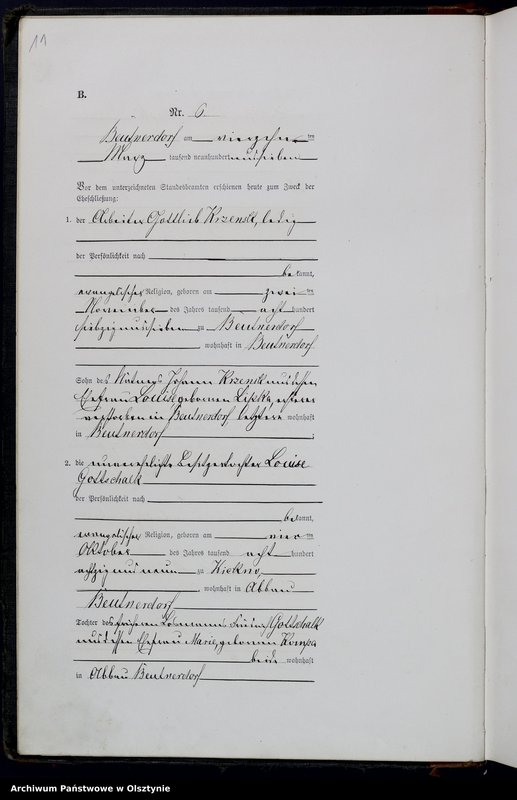 11
B.
Nr. 6
Beutnerdorf am vierzehn ten
März tausend neunhundert und sieben
Vor dem unterzeichneten Standesbeamten erschienen heute zum Zweck der
Eheschließung:
1. der Arbeiter Gottlieb Krzensk, ledig
der Persönlichkeit nach
be kannt,
evangelischer Religion, geboren am zwei ten
November des Jahres tausend acht hundert
siebzig und sieben zu Beutnerdorf
, wohnhaft in Beutnerdorf
Sohn des Johann Krzensk und dessen
Ehefrau Louise geborenen Lipka, ersterer
verstorben in Beutnerdorf, letztere wohnhaft
in Beutnerdorf ;
2. die unverehelichte Besitzertochter Louise
Gottschalk
der Persönlichkeit nach
be kannt,
evangelischer Religion, geboren am vier ten
Oktober des Jahres tausend acht hundert
achtzig und neun zu Kiekno,
, wohnhaft in Abbau
Beutnerdorf
Tochter des früheren Losmanns Gottschalk
und dessen Ehefrau Marie, geborenen Kompa
beide wohnhaft
in Abbau Beutnerdorf
Archiwum Państwowe w Olsztynie